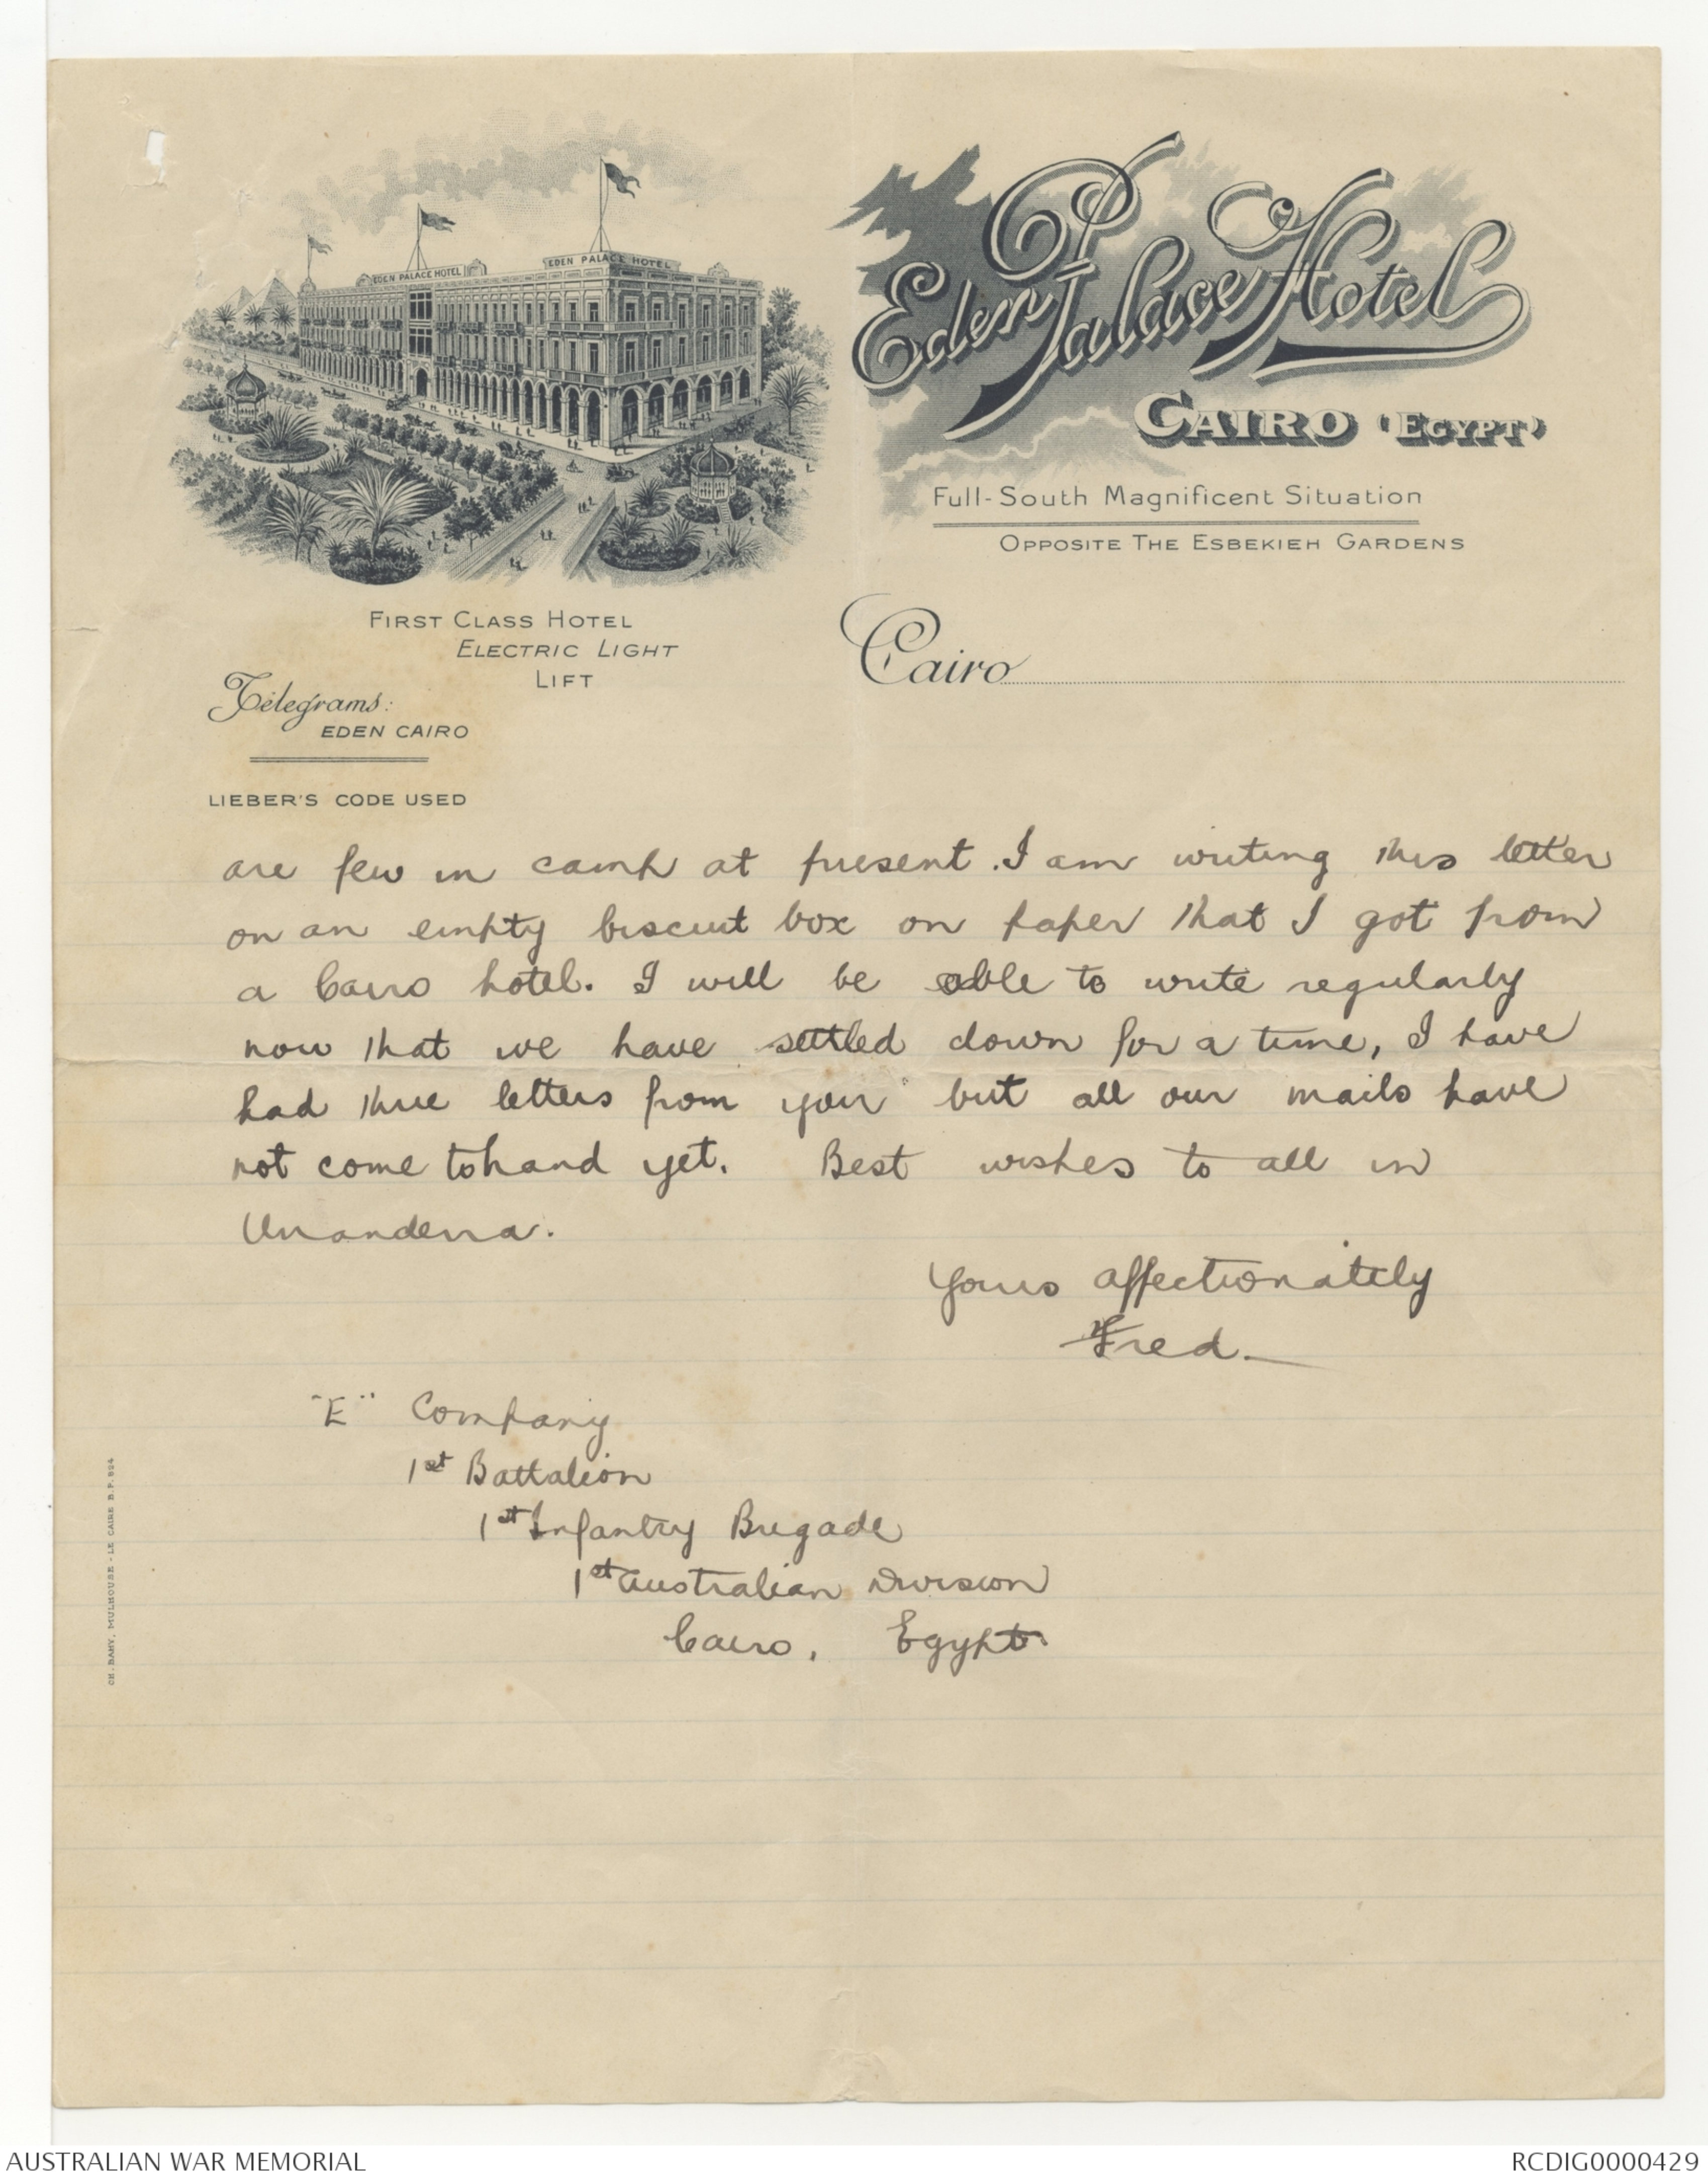 EDEN PALACE HOTEL
EDEN PALACE HOTEL
Eden Palace Hotel
CAIRO (EGYPT)
Full-South Magnificent Situation
OPPOSITE THE ESBEKIEH GARDENS
FIRST CLASS HOTEL
ELECTRIC LIGHT
LIFT
Telegrams:
EDEN CAIRO
LIEBER'S CODE USED
Cairo
are few in camp at present. I am writing this letter
on an empty biscuit box on paper that I got from
a Cairo hotel. I will be able to write regularly
now that we have settled down for a time, I have
had three letters from you but all our mails have
not come to hand yet. Best wishes to all in
Unanderra.
Yours affectionately
Fred.
"E" Company
1st Battalion
1st Infantry Brigade
1st Australian Division
Cairo, Egypt.
CH. BAHY, MULHOUSE - LE CAIRE B.P. 924
AUSTRALIAN WAR MEMORIAL
RCDIG0000429